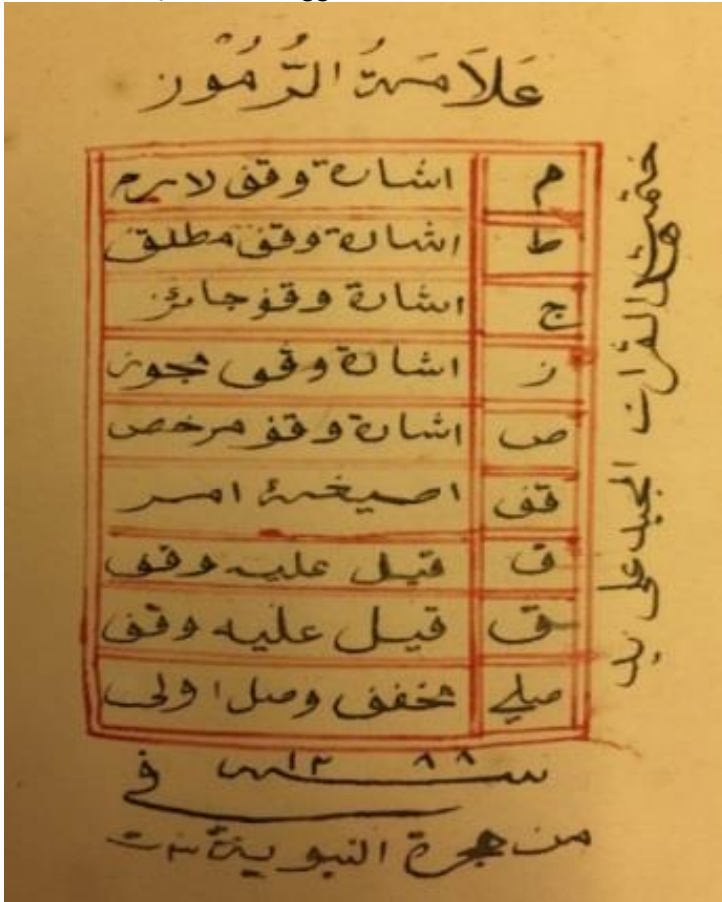 عَلَامَةُ الرُّمُوْز
م اشارة وقف لازم
ط اشارة وقف مطلق
ج اشارة وقف جائز
ز اشارة وقف مجوز
ص اشارة وقف مرخص
قف صيغۀ امر
ق قيل عليه وقف
ق قيل عليه وقف
صلے مخفف وصل اولى
القرآن المجيد على يد
فى سنة ١٢٨٨
من هجرة النبوية